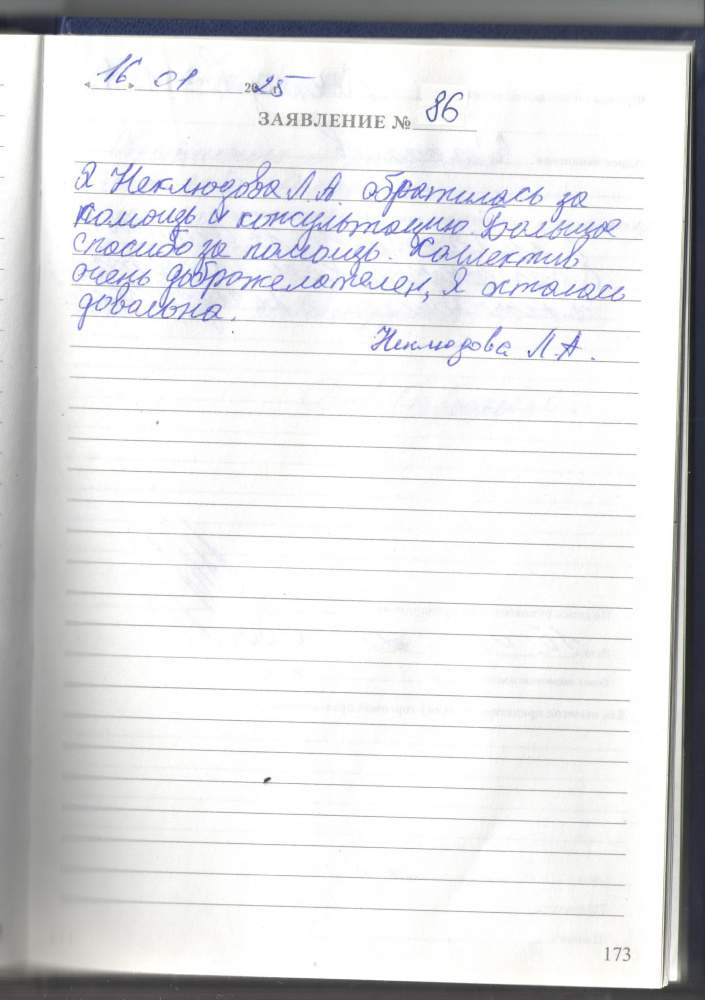 «16» 01 2025
ЗАЯВЛЕНИЕ № 86
Я Неклюдова Л.А. обратилась за
помощь и консультацию. Большое
спасибо за помощь. Коллектив
очень доброжелателен, Я осталась
довольна.
Неклюдова Л.А.
173